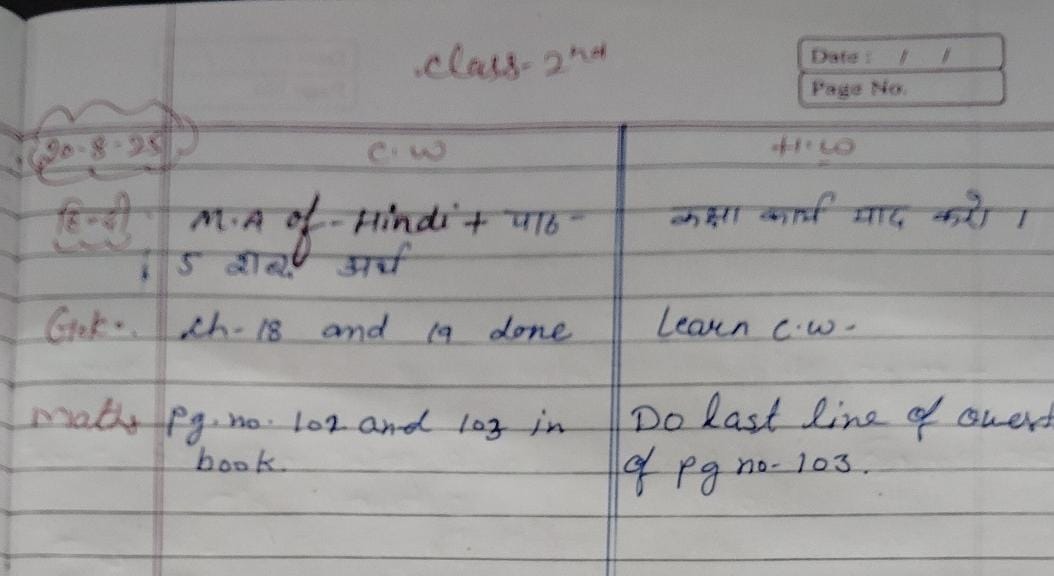 Class-2nd
Date: / /
Page No.
20-8-25 C.W H.W
हिन्दी M.A of - Hindi + पाठ- कक्षा कार्य याद करो।
5 शब्द अर्थ
G.k. Ch-18 and 19 done Learn C.W-
Maths Pg. no. 102 and 103 in Do last line of
book. of Pg no- 103.